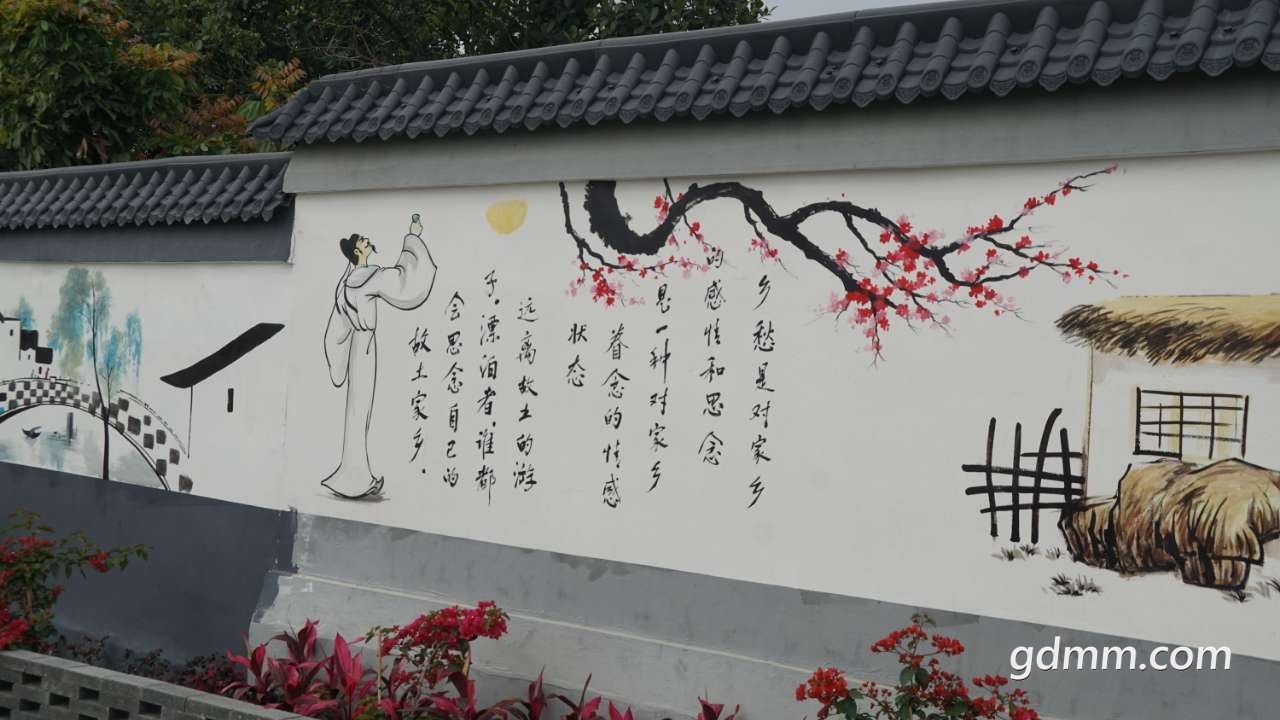 乡愁是对家乡
的感情和思念
是一种对家乡
眷念的情感
状态
远离故土的游
子。漂泊者，谁都
会思念自己的
故土家乡．
gdmm.com